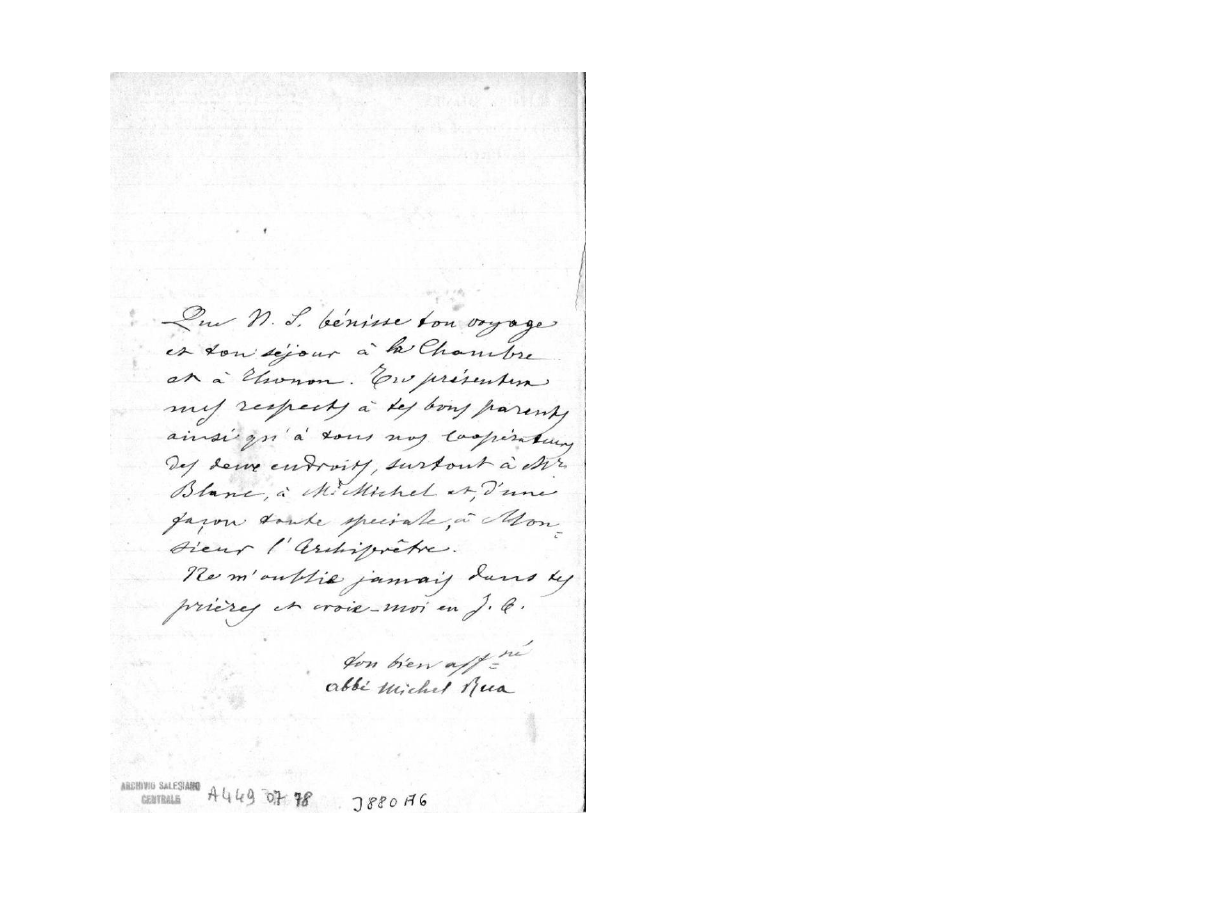 Que N. S. bénisse ton voyage
et ton séjour à la Chambre
et à Thonon. Tu présentera
mes respects à tes bons parents
ainsi qu'à tous nos Coopérateurs
des deux endroits, surtout à Mr.
Blanc, à Mr Michel et, d'une
façon toute speciale, à Mon=
sieur l'Archiprêtre.
Ne m'oublie jamais dans tes
prières et crois-moi en J. C.
ton bien affné
abbé Michel Rua
ARCHIVIO SALESIANO
CENTRALE
A449 07 78
3880 A6